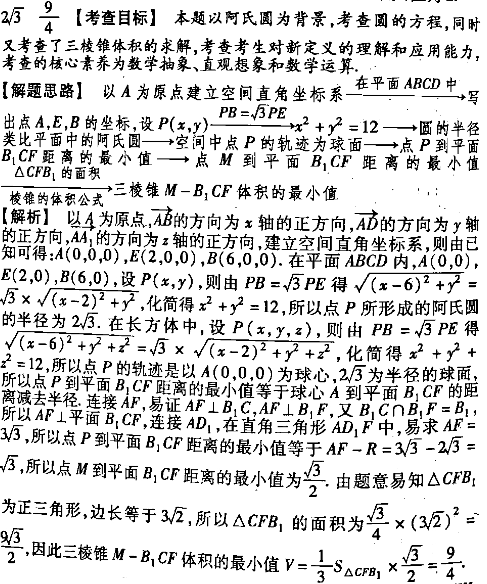 2√3 9/4 【考查目标】 本题以阿氏圆为背景,考查圆的方程,同时
又考查了三棱锥体积的求解,考查考生对新定义的理解和应用能力,
考查的核心素养为数学抽象、直观想象和数学运算.
【解题思路】 以 A 为原点建立空间直角坐标系 在平面 ABCD 中→ 写
出点 A,E,B 的坐标,设 P(x,y) PB=√3PE→ x²+y²=12→圆的半径
类比平面中的阿氏圆→空间中点 P 的轨迹为球面→点 P 到平面
B₁CF 距离的最小值→点 M 到平面 B₁CF 距离的最小值
△CFB₁ 的面积
棱锥的体积公式→三棱锥 M-B₁CF 体积的最小值
【解析】 以 A 为原点,AB的方向为 x 轴的正方向,AD的方向为 y 轴
的正方向,AA₁的方向为 z 轴的正方向,建立空间直角坐标系,则由已
知可得:A(0,0,0),E(2,0,0),B(6,0,0). 在平面 ABCD 内,A(0,0),
E(2,0),B(6,0),设 P(x,y),则由 PB=√3PE 得 √((x-6)²+y²) =
√3×√((x-2)²+y²),化简得 x²+y²=12,所以点 P 所形成的阿氏圆
的半径为 2√3. 在长方体中,设 P(x,y,z),则由 PB=√3PE 得
√((x-6)²+y²+z²) = √3×√((x-2)²+y²+z²),化简得 x²+y²+
z²=12,所以点 P 的轨迹是以 A(0,0,0)为球心,2√3为半径的球面,
所以点 P 到平面 B₁CF 距离的最小值等于球心 A 到平面 B₁CF 的距
离减去半径. 连接 AF,易证 AF⊥B₁C,AF⊥B₁F,又 B₁C∩B₁F=B₁,
所以 AF⊥平面 B₁CF,连接 AD₁,在直角三角形 AD₁F 中,易求 AF=
3√3,所以点 P 到平面 B₁CF 距离的最小值等于 AF-R=3√3-2√3=
√3,所以点 M 到平面 B₁CF 距离的最小值为√3/2. 由题意易知△CFB₁
为正三角形,边长等于 3√2,所以△CFB₁ 的面积为√3/4×(3√2)²=
9√3/2,因此三棱锥 M-B₁CF 体积的最小值 V=1/3S△CFB₁×√3/2=9/4.